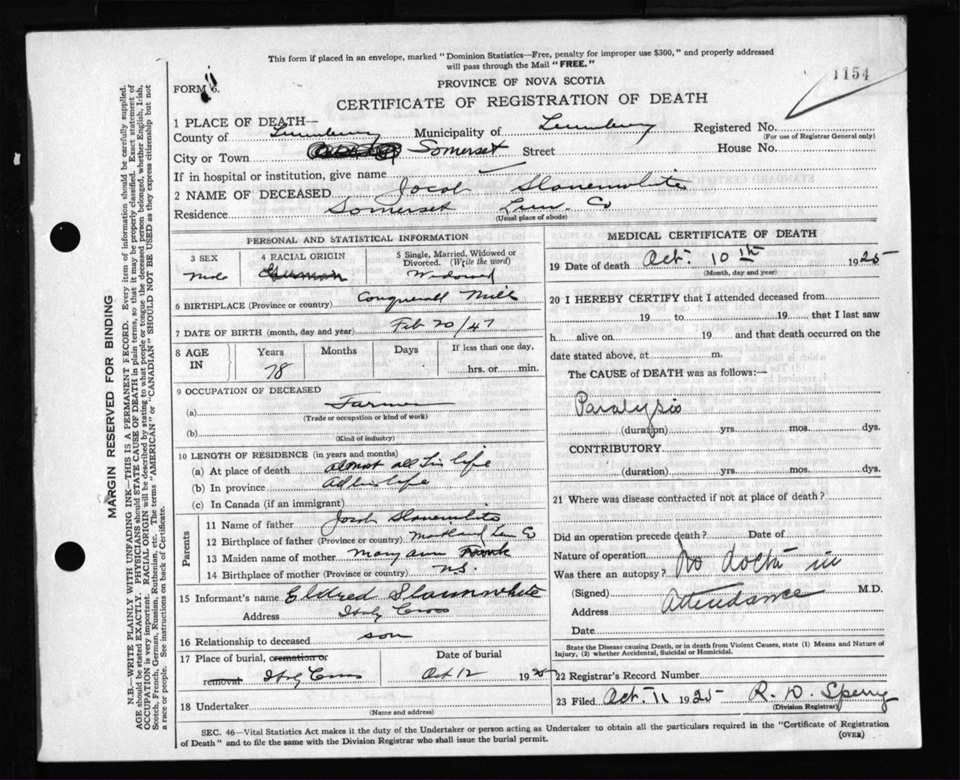 This form if placed in an envelope, marked "Dominion Statistics—Free, penalty for improper use $300," and properly addressed
will pass through the Mail "FREE."
1154
FORM 6.
PROVINCE OF NOVA SCOTIA
CERTIFICATE OF REGISTRATION OF DEATH
1 PLACE OF DEATH—
County of Lunenburg Municipality of Lunenburg Registered No.
(For use of Registrar General only)
City or Town Somerset Street House No.
If in hospital or institution, give name
2 NAME OF DECEASED Jacob Slauenwhite
Residence Somerset Lun. Co
(Usual place of abode)
PERSONAL AND STATISTICAL INFORMATION
3 SEX 4 RACIAL ORIGIN 5 Single, Married, Widowed or
Divorced. (Write the word)
male German Widowed
6 BIRTHPLACE (Province or country) Conquerall Mills
7 DATE OF BIRTH (month, day and year) Feb 20/47
8 AGE IN Years Months Days If less than one day,
78 hrs. or min.
9 OCCUPATION OF DECEASED
(a) Farmer
(Trade or occupation or kind of work)
(b)
(Kind of industry)
10 LENGTH OF RESIDENCE (in years and months)
(a) At place of death almost all his life
(b) In province all his life
(c) In Canada (if an immigrant)
Parents
11 Name of father Jacob Slauenwhite
12 Birthplace of father (Province or country) Maitland Lun Co
13 Maiden name of mother Mary Ann
14 Birthplace of mother (Province or country) N.S.
15 Informant's name Eldred Slaunwhite
Address Italy Cross
16 Relationship to deceased son
17 Place of burial, cremation or Date of burial
removal Italy Cross Oct 12 1925
18 Undertaker
(Name and address)
MEDICAL CERTIFICATE OF DEATH
19 Date of death Oct. 10th 1925
(Month, day and year)
20 I HEREBY CERTIFY that I attended deceased from
19 to 19 that I last saw
h alive on 19 and that death occurred on the
date stated above, at m.
The CAUSE of DEATH was as follows:—
Paralysis
(duration) yrs. mos. dys.
CONTRIBUTORY
(duration) yrs. mos. dys.
21 Where was disease contracted if not at place of death?
Did an operation precede death? Date of
Nature of operation
Was there an autopsy? No doctor in
(Signed) Attendance M.D.
Address
Date
State the Disease causing Death, or in death from Violent Causes, state (1) Means and Nature of
Injury, (2) whether Accidental, Suicidal or Homicidal.
22 Registrar's Record Number
23 Filed Oct. 11 1925 R. D. Sperry
(Division Registrar)
SEC. 46—Vital Statistics Act makes it the duty of the Undertaker or person acting as Undertaker to obtain all the particulars required in the "Certificate of Registration
of Death" and to file the same with the Division Registrar who shall issue the burial permit. (OVER)
MARGIN RESERVED FOR BINDING
N.B.—WRITE PLAINLY WITH UNFADING INK—THIS IS A PERMANENT RECORD. Every item of information should be carefully supplied.
AGE should be stated EXACTLY. PHYSICIANS should STATE CAUSE OF DEATH in plain terms, so that it may be properly classified. Exact statement of
OCCUPATION is very important. RACIAL ORIGIN will be described by stating to what people or tongue the deceased person belonged, whether English, Irish,
Scotch, French, German, Russian, Ruthenian, etc. The terms "AMERICAN" or "CANADIAN" SHOULD NOT BE USED as they express citizenship but not
a race or people. See instructions on back of Certificate.